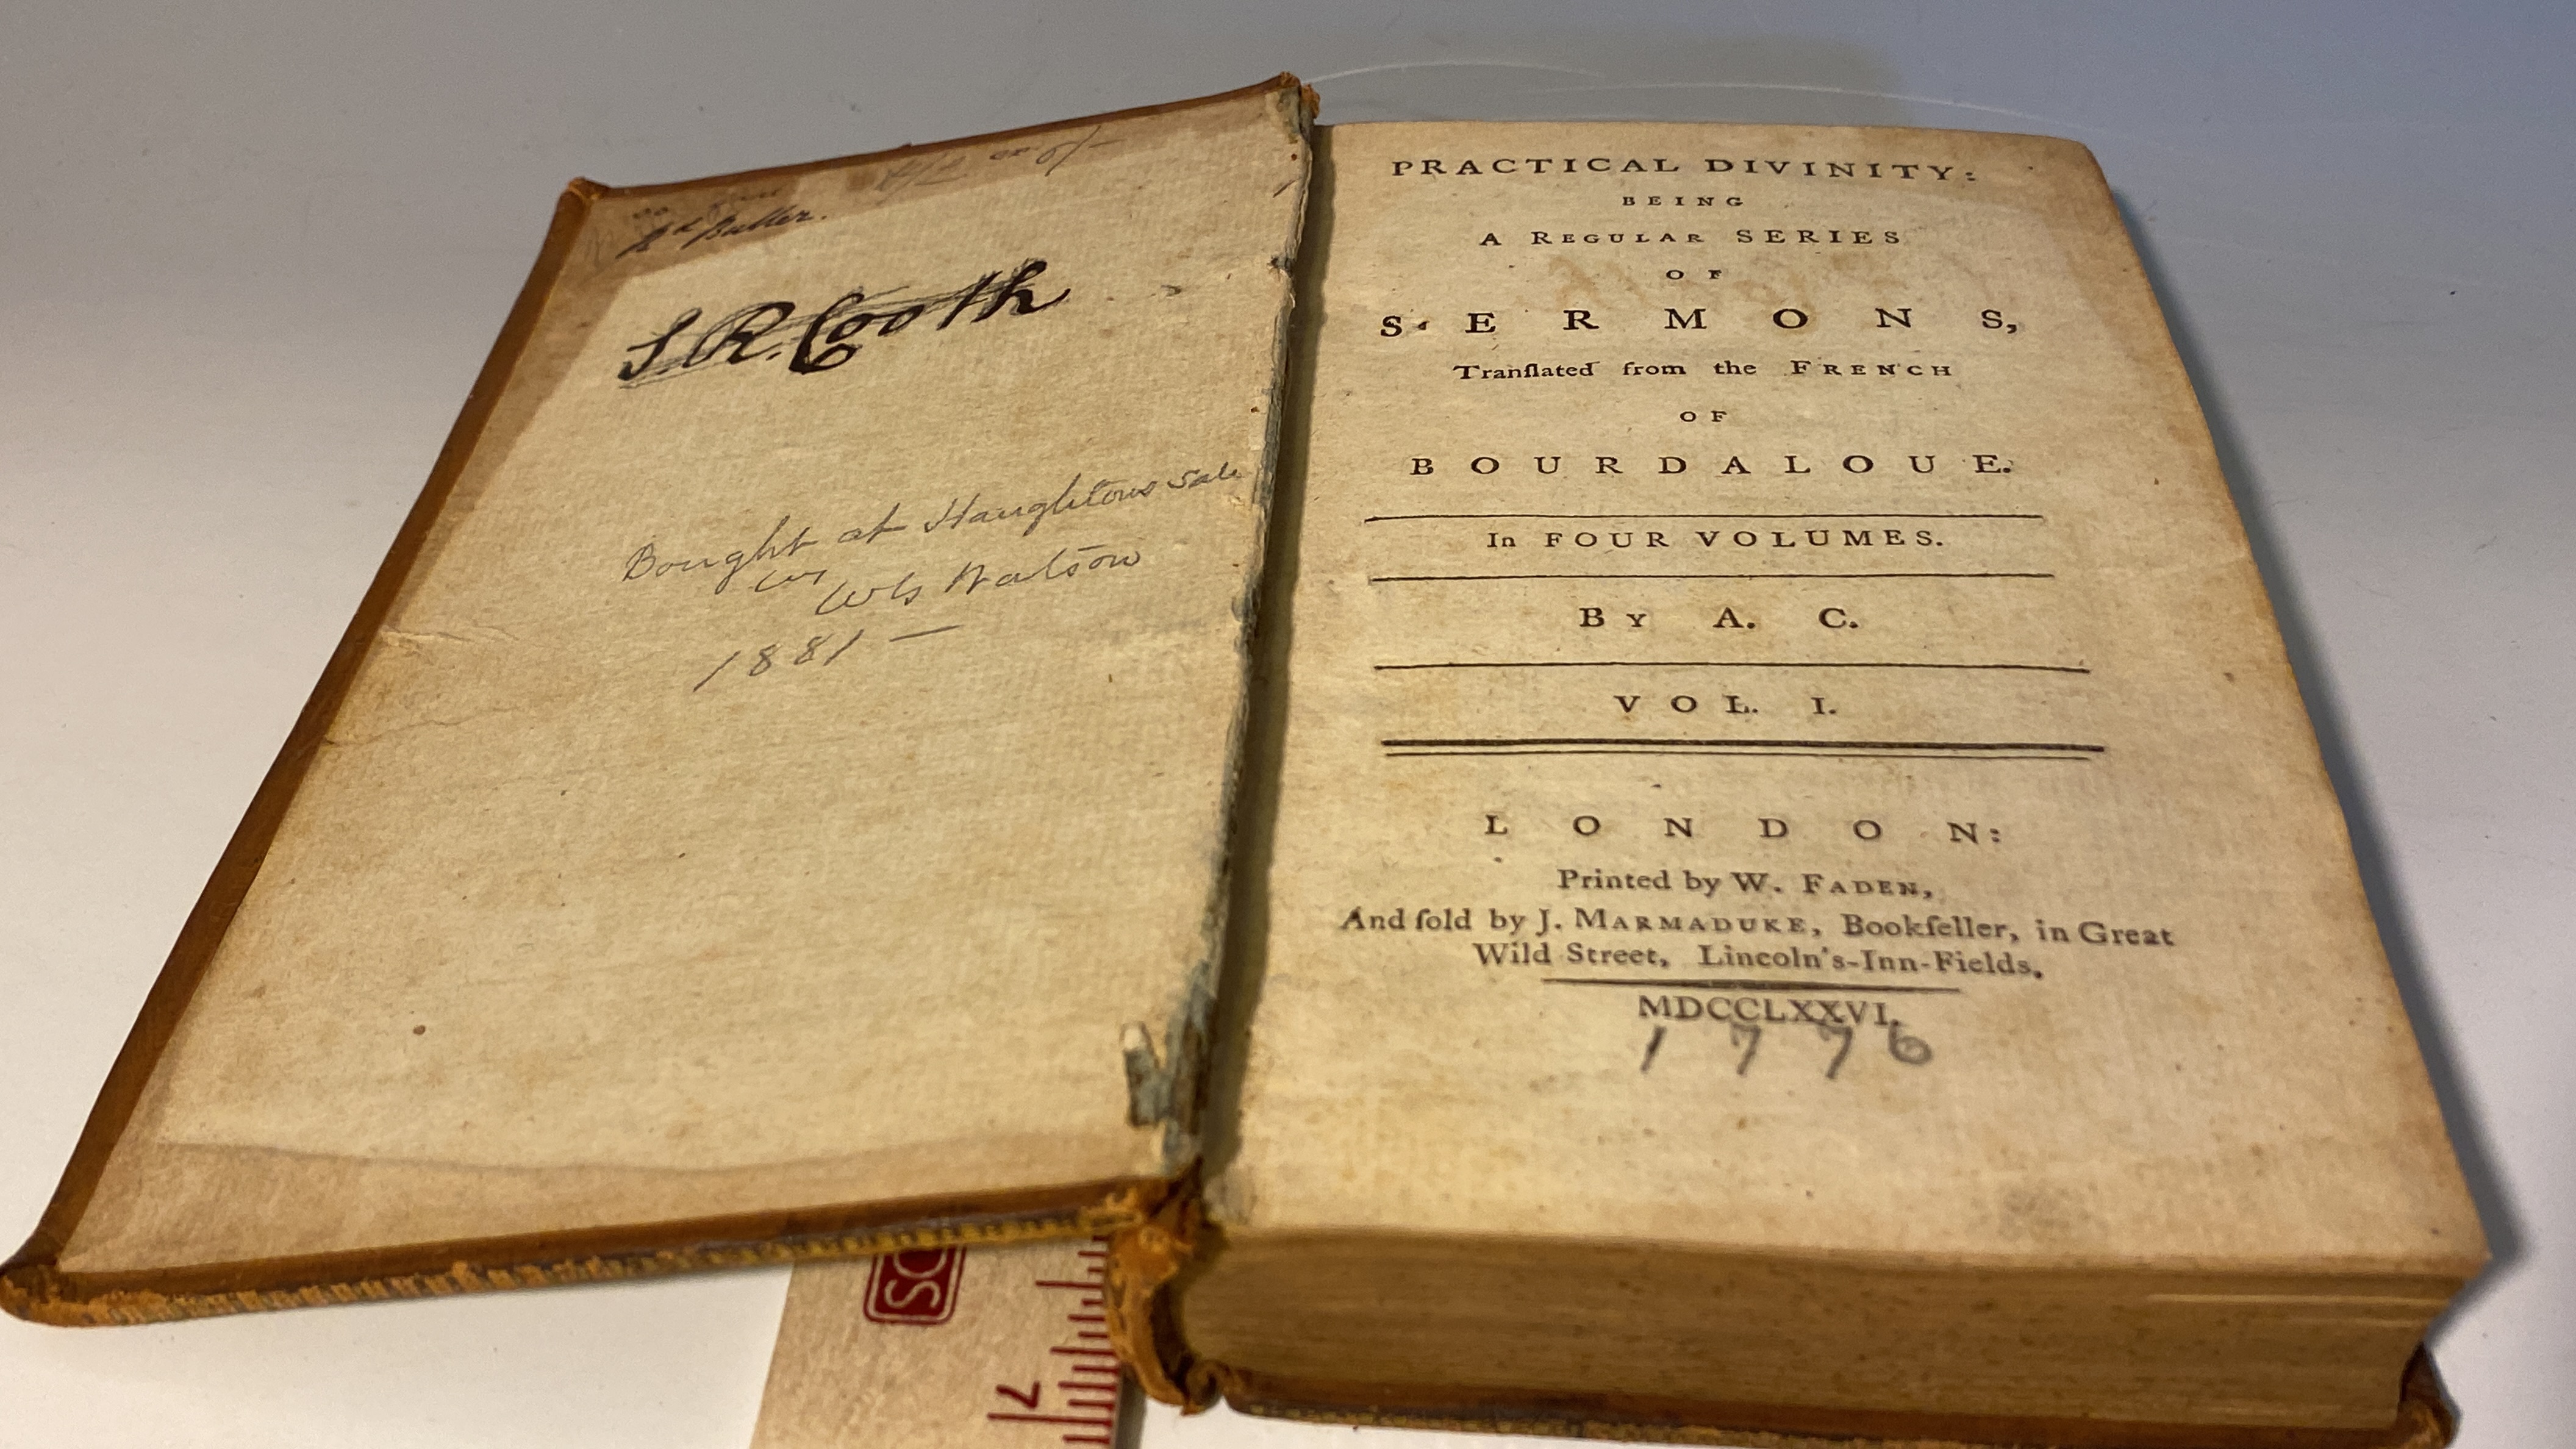 Rd Butler.
S. R. Cooth
Bought at Haughtons Sale
Wls Watson
1881 —
PRACTICAL DIVINITY:
BEING
A REGULAR SERIES
OF
SERMONS,
Tranſlated from the FRENCH
OF
BOURDALOUE.
In FOUR VOLUMES.
By A. C.
VOL. I.
LONDON:
Printed by W. FADEN,
And ſold by J. MARMADUKE, Bookſeller, in Great
Wild Street, Lincoln's-Inn-Fields,
MDCCLXXVI.
1776